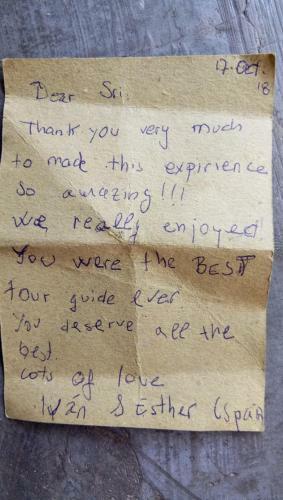 17. Oct.
18
Dear Sri:
Thank you very much
to made this expirience
so amazing!!!
We really enjoyed
You were the BEST
tour guide ever
You deserve all the
best.
Lots of love
Iván & Esther (Spain